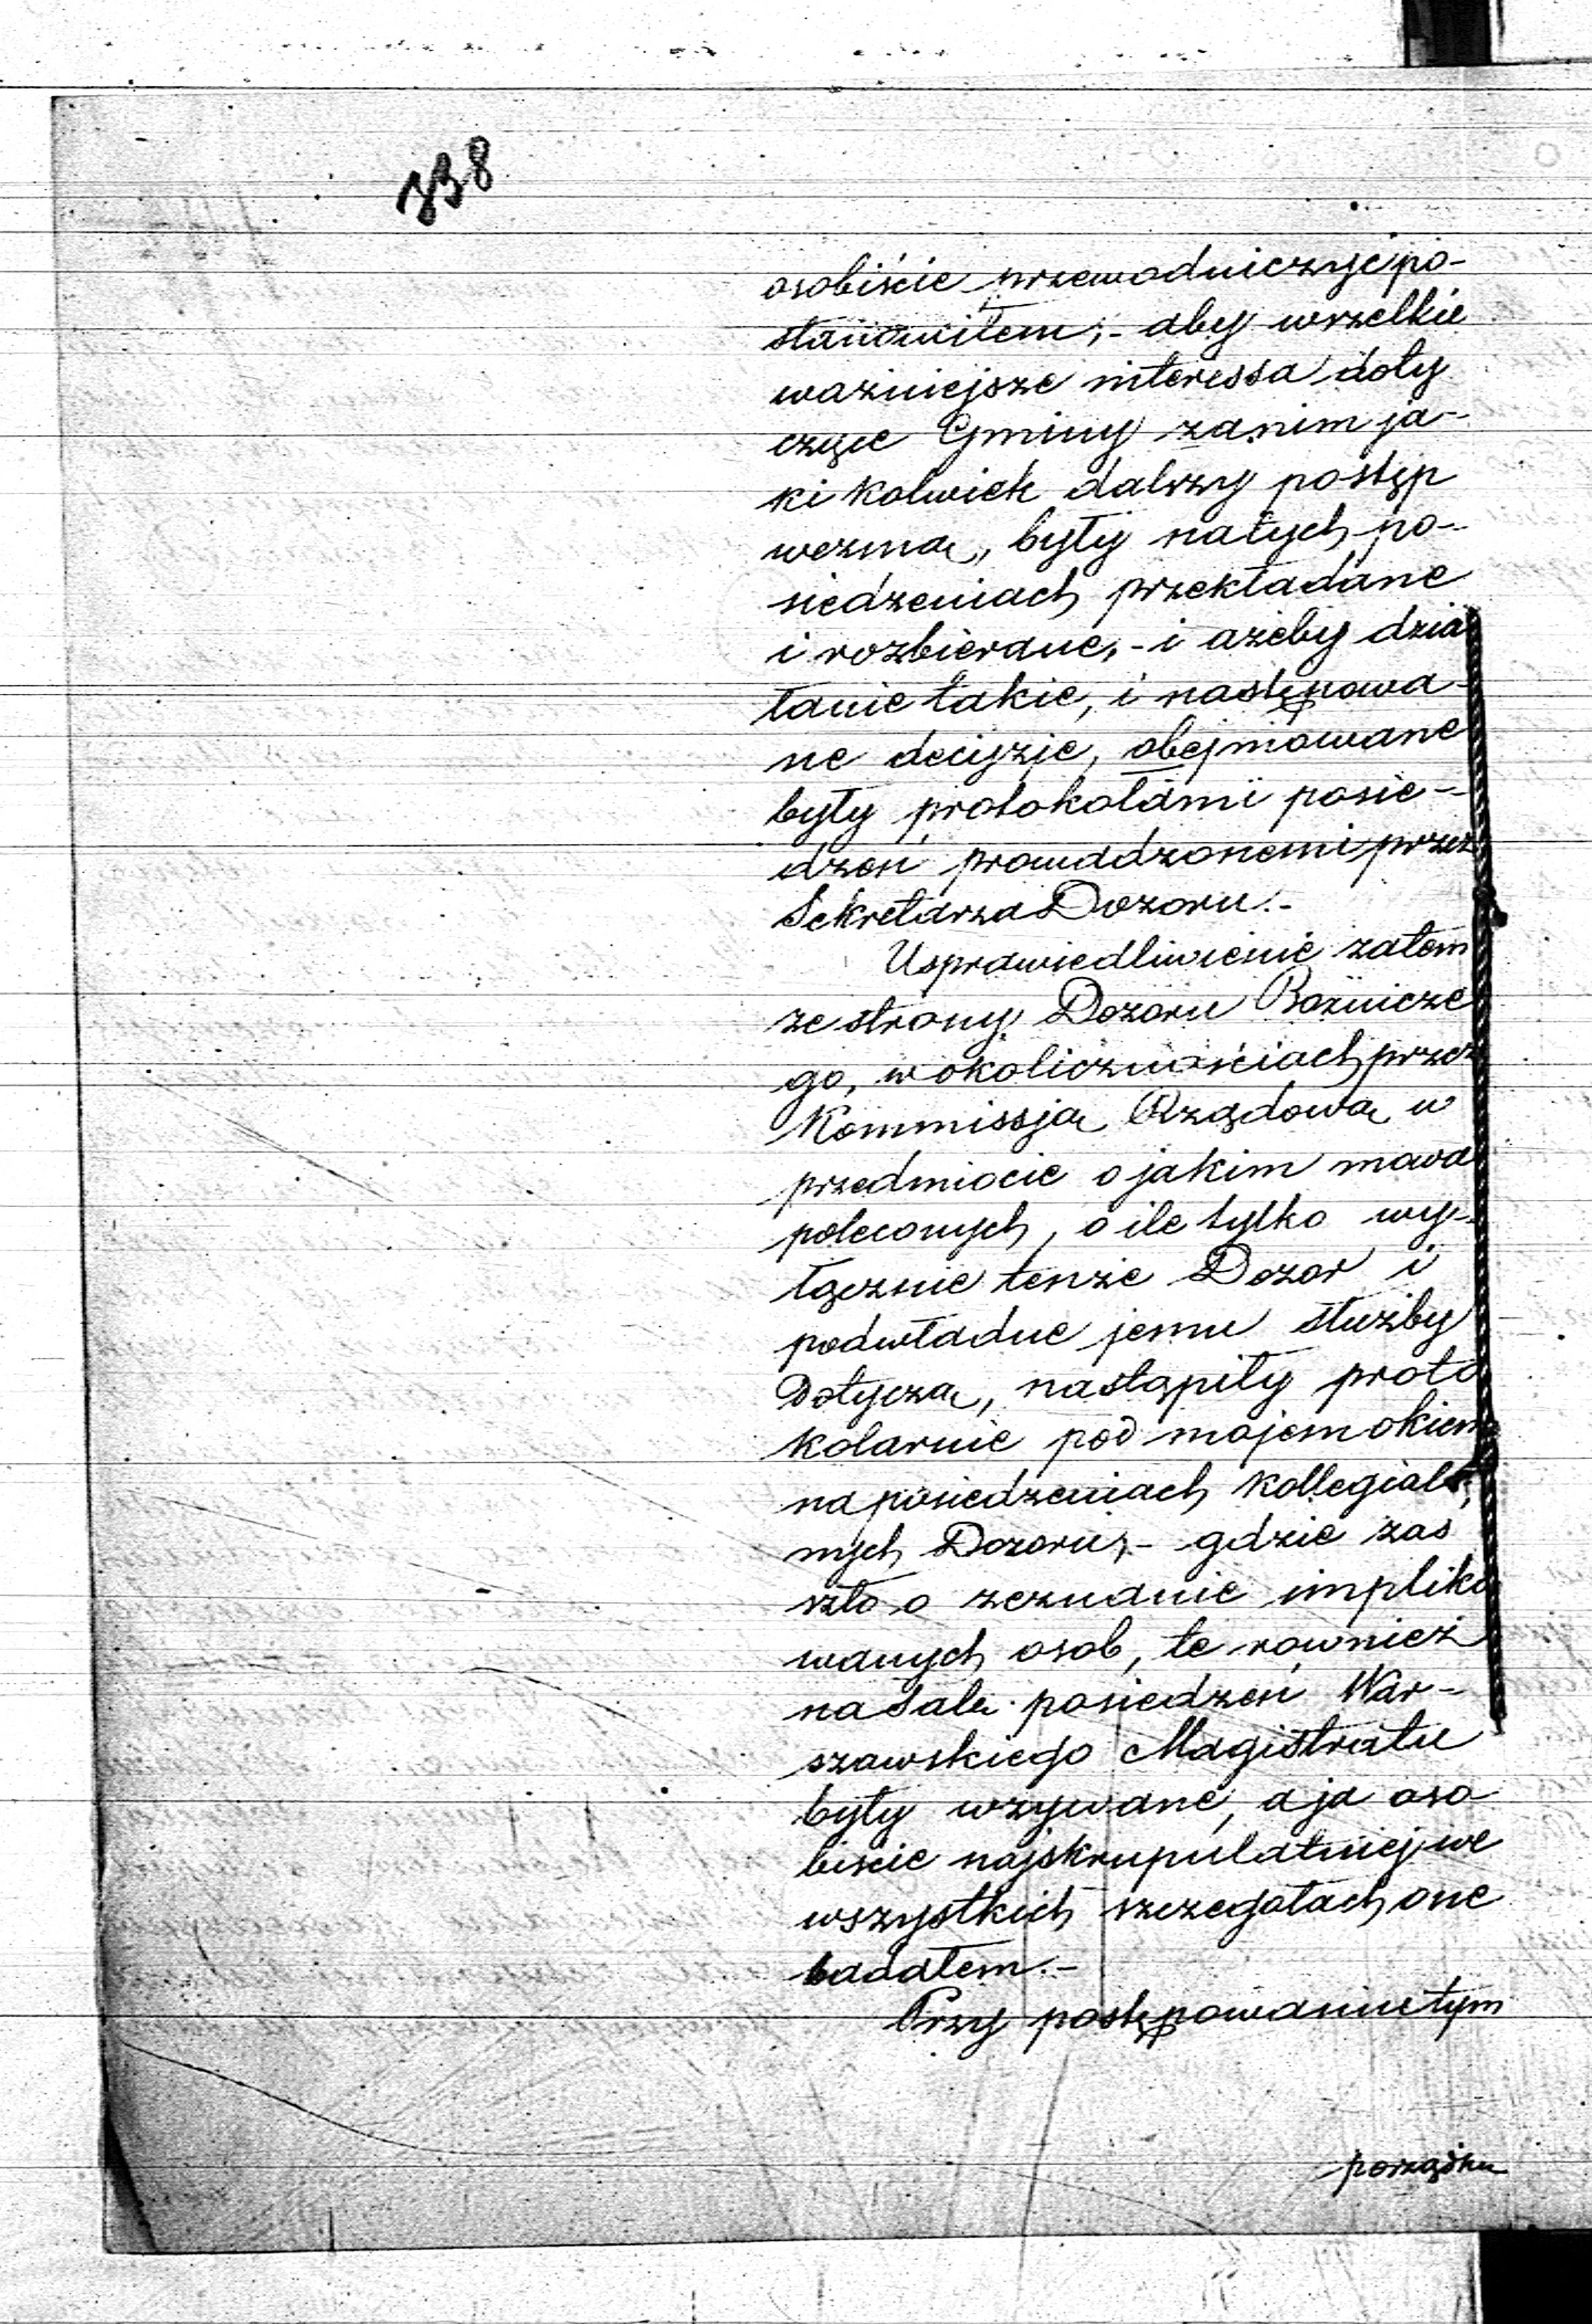 338
osobiście przewodniczyć po-
stanowiłem,- aby wszelkie
ważniejsze interessa doty
czące Gminy zanim ja-
ki kolwiek dalszy postęp
wezmą, były na tych po-
siedzeniach przekładane
i rozbierane,- i ażeby dzia
łanie takie, i następowa-
ne decyzje, obejmowane
były protokołami posie-
dzeń, prowadzonemi przez
Sekretarza Dozoru.-
Usprawiedliwienie zatem
ze strony Dozoru Bożnicze
go, w okolicznościach przez
Kommissją Rządową w
przedmiocie o jakim mowa
poleconych, o ile tylko wy-
łącznie tenże Dozor i
podwładne jemu służby
dotyczą, nastąpiły proto
kolarnie pod mojem okiem
na posiedzeniach kollegial-
nych Dozoru,- gdzie zaś
szło o zeznanie impliko
wanych osob, te rownież
na Sale posiedzeń War-
szawskiego Magistratu
były wzywane, a ja oso
biście najskrupulatniej we
wszystkich szczegołach one
badałem.-
Przy postępowaniu tym
porządku